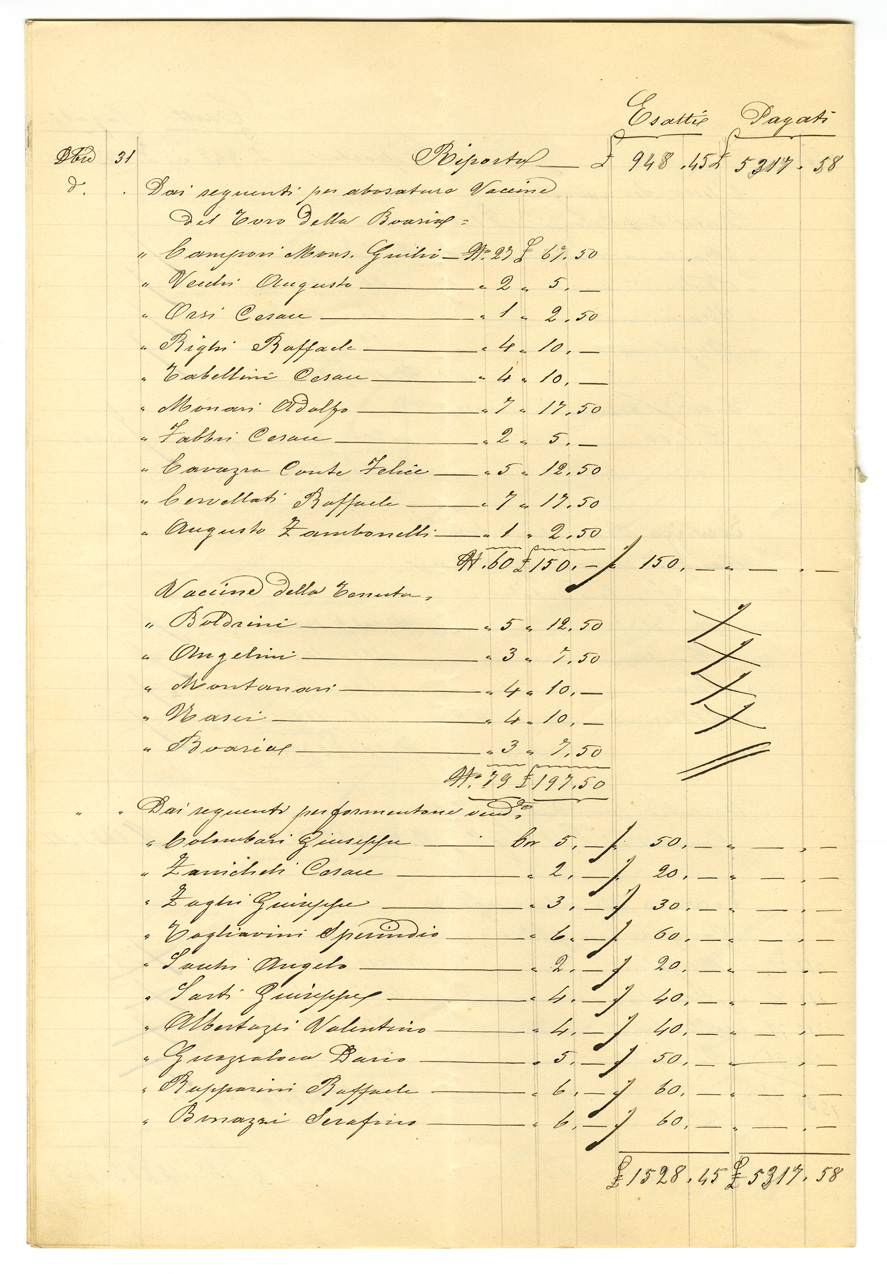 Esatti Pagati
31 Riporto £ 948.45 £ 5317.58
d. . Dai seguenti per abosatura Vaccine
del Toro della Boaria =
" Campori Mons. Giulio N.º 27 £ 67.50
" Vecchi Augusto " 2 " 5. —
" Orsi Cesare " 1 " 2.50
" Righi Raffaele " 4 " 10. —
" Tabellini Cesare " 4 " 10. —
" Monari Adolfo " 7 " 17.50
" Fabbri Cesare " 2 " 5. —
" Cavazza Conte Felice " 5 " 12.50
" Cervellati Raffaele " 7 " 17.50
" Augusto Zambonelli " 1 " 2.50
N. 60 £ 150. — 150. — " — . —
Vaccine della Tenuta =
" Boldrini " 5 " 12.50
" Angelini " 3 " 7.50
" Montanari " 4 " 10. —
" Masei " 4 " 10. —
" Boaria " 3 " 7.50
N.º 79 £ 197.50
" " Dai seguenti per formentone vend.º =
" Colombari Giuseppe Cor 5. — 50. — " — . —
" Zanicheli Cesare " 2. — 20. — " — . —
" Zaghi Giuseppe " 3. — 30. — " — . —
" Tagliavini Sperindio " 6. — 60. — " — . —
" Sacchi Angelo " 2. — 20. — " — . —
" Sarti Giuseppe " 4. — 40. — " — . —
" Albertazzi Valentino " 4. — 40. — " — . —
" Guazzaloca Dario " 5. — 50. — " — . —
" Rapparini Raffaele " 6. — 60. — " — . —
" Binazzi Serafino " 6. — 60. — " — . —
£ 1528.45 £ 5317.58